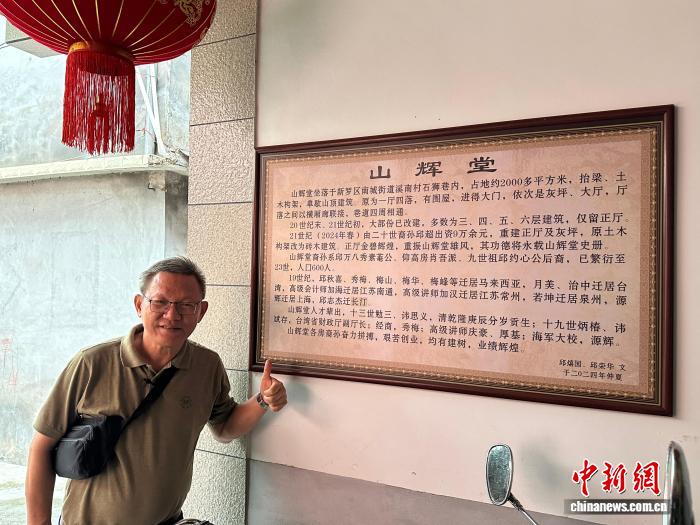 山辉堂
山辉堂坐落于新罗区南城街道溪南村石狮巷内，占地约2000多平方米，抬梁、土
木构架，单歇山顶建筑。原为一厅四落，有围屋，进得大门，依次是灰坪、大厅，厅
落之间以横厢廊联接，巷道四周相通。
20世纪末、21世纪初，大部份已改建，多数为三、四、五、六层建筑，仅留正厅。
21世纪（2024年春）由二十世裔孙邱超出资9万余元，重建正厅及灰坪，原土木
构架改为砖木建筑。正厅金碧辉煌，重振山辉堂雄风，其功德将永载山辉堂史册。
山辉堂裔孙系邱万八秀素菴公、仰高房肖吾派、九世祖邱约心公后裔，已繁衍至
23世，人口600人。
19世纪，邱秋喜、秀梅、梅山、梅华、梅峰等迁居马来西亚，月美、治中迁居台
湾，高级会计师加海迁居江苏南通，高级讲师加汉迁居江苏常州，若坤迁居泉州，源
辉迁居上海，邱志杰迁长汀。
山辉堂人才辈出，十三世勉三、讳思义，清乾隆庚辰分岁贡生；十九世炳椿、讳
斌存，台湾省财政厅副厅长；经商，秀梅；高级讲师庆豪、厚基；海军大校，源辉。
山辉堂各房裔孙奋力拼搏，艰苦创业，均有建树，业绩辉煌。
邱熵国、邱荣华 文
于二〇二四年仲夏
中新网
chinanews.com